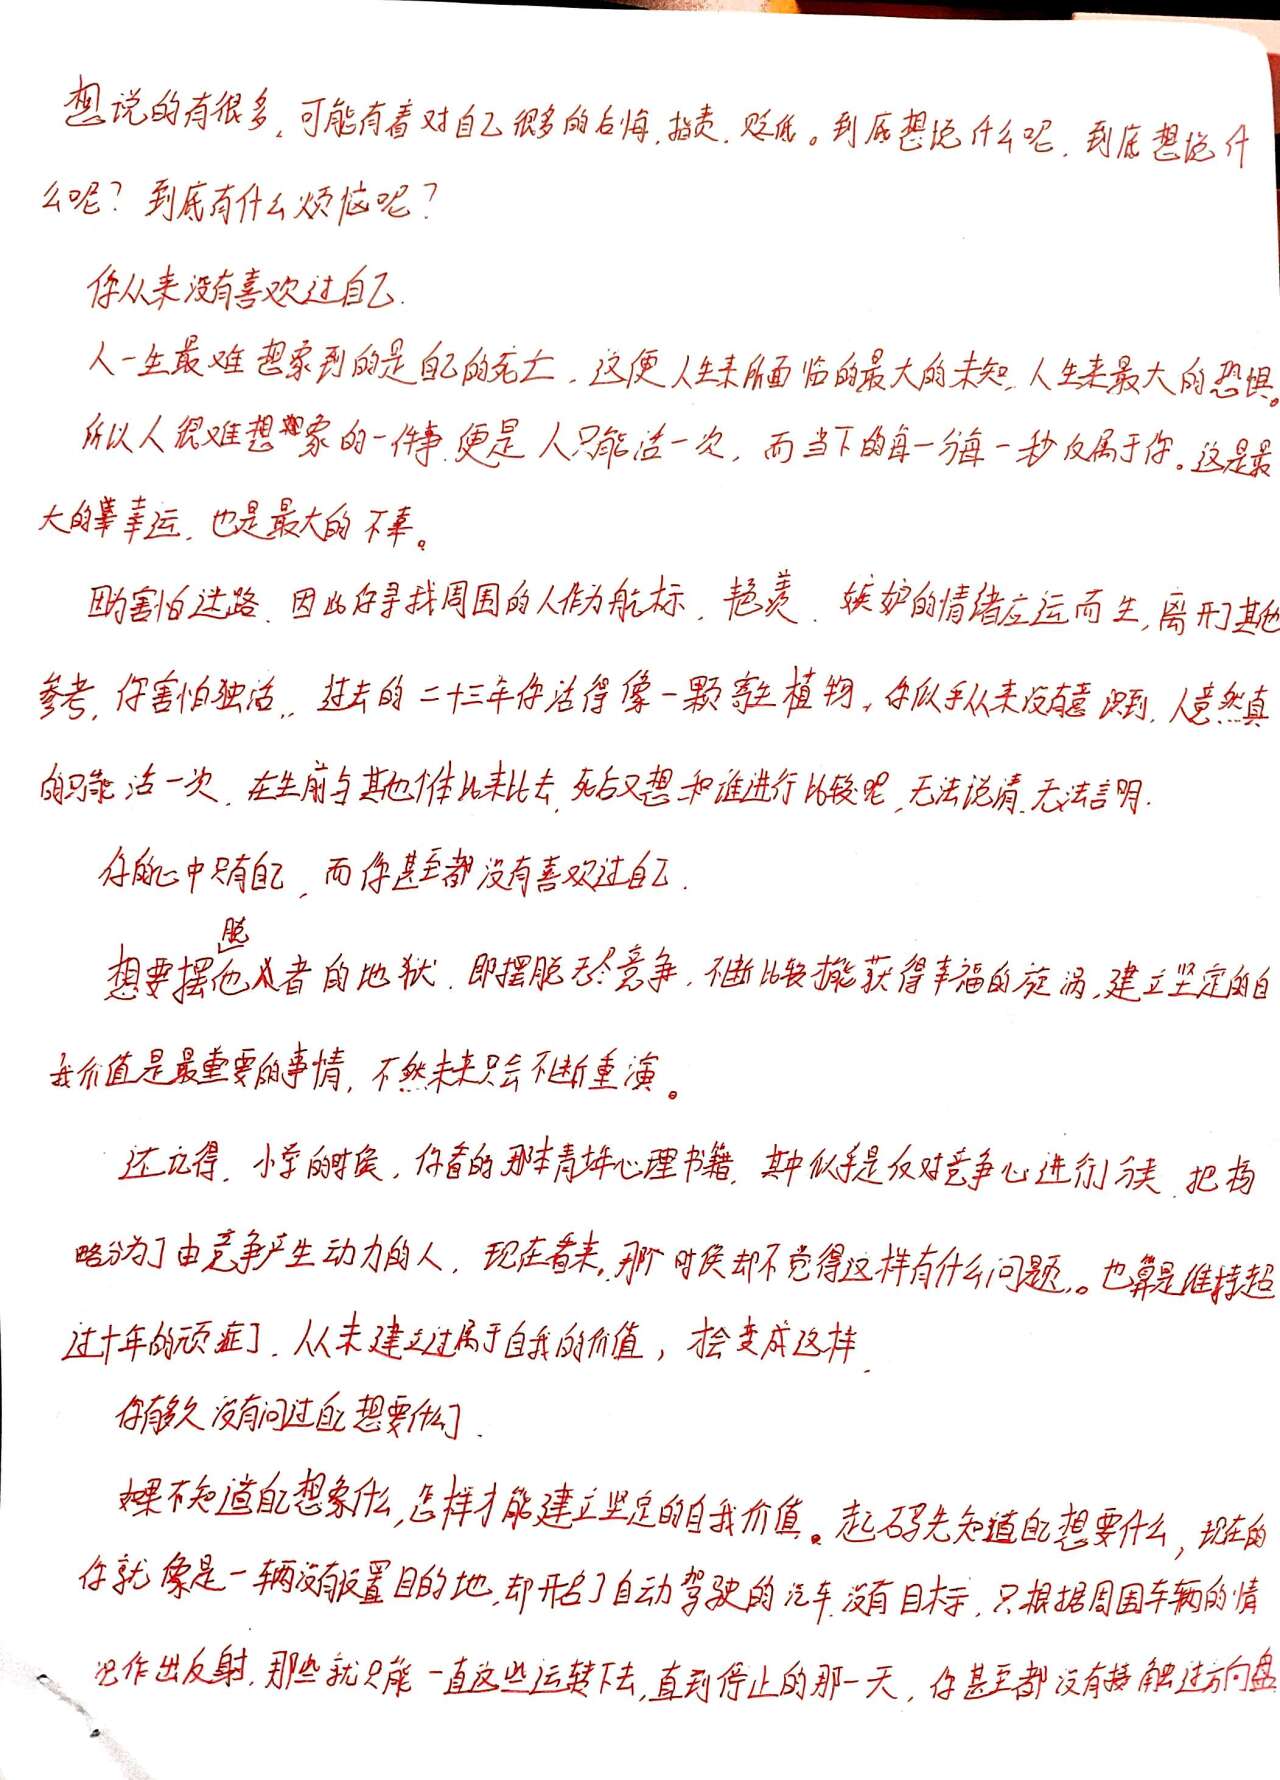 想说的有很多，可能有着对自己很多的后悔，指责，贬低。到底想说什么呢，到底想说什
么呢？到底有什么烦恼呢？
你从来没有喜欢过自己.
人一生最难想象到的是自己的死亡，这便人生来所面临的最大的未知，人生来最大的恐惧。
所以人很难想象的一件事，便是人只能活一次，而当下的每一分每一秒仅属于你。这是最
大的幸运，也是最大的不幸。
因为害怕迷路，因此你寻找周围的人作为航标，艳羡，嫉妒的情绪应运而生，离开了其他
参考，你害怕独活，过去的二十三年你活得像一颗寄生植物，你似乎从来没有意识到，人竟然真
的只能活一次，在生前与其他个体比来比去，死后又想和谁进行比较呢，无法说清，无法言明.
你的心中只有自己，而你甚至都没有喜欢过自己.
想要摆脱他者的地狱，即摆脱无尽竞争，不断比较才能获得幸福的旋涡，建立坚定的自
我价值是最重要的事情，不然未来只会不断重演。
还记得，小学的时候，你看的那本青少年心理书籍，其中似乎是仅对竞争心进行分类，把
略分为了由竞争产生动力的人，现在看来，那个时候却不觉得这样有什么问题。也算是维持超
过十年的顽症了，从未建立过属于自我的价值，才会变成这样.
你有多久没有问过自己想要什么了.
如果不知道自己想象什么，怎样才能建立坚定的自我价值。起码先知道自己想要什么，现在的
你就像是一辆没有设置目的地，却开启了自动驾驶的汽车，没有目标，只根据周围车辆的情
况作出反射，那些就只能一直这些运转下去，直到停止的那一天，你甚至都没有接触过方向盘